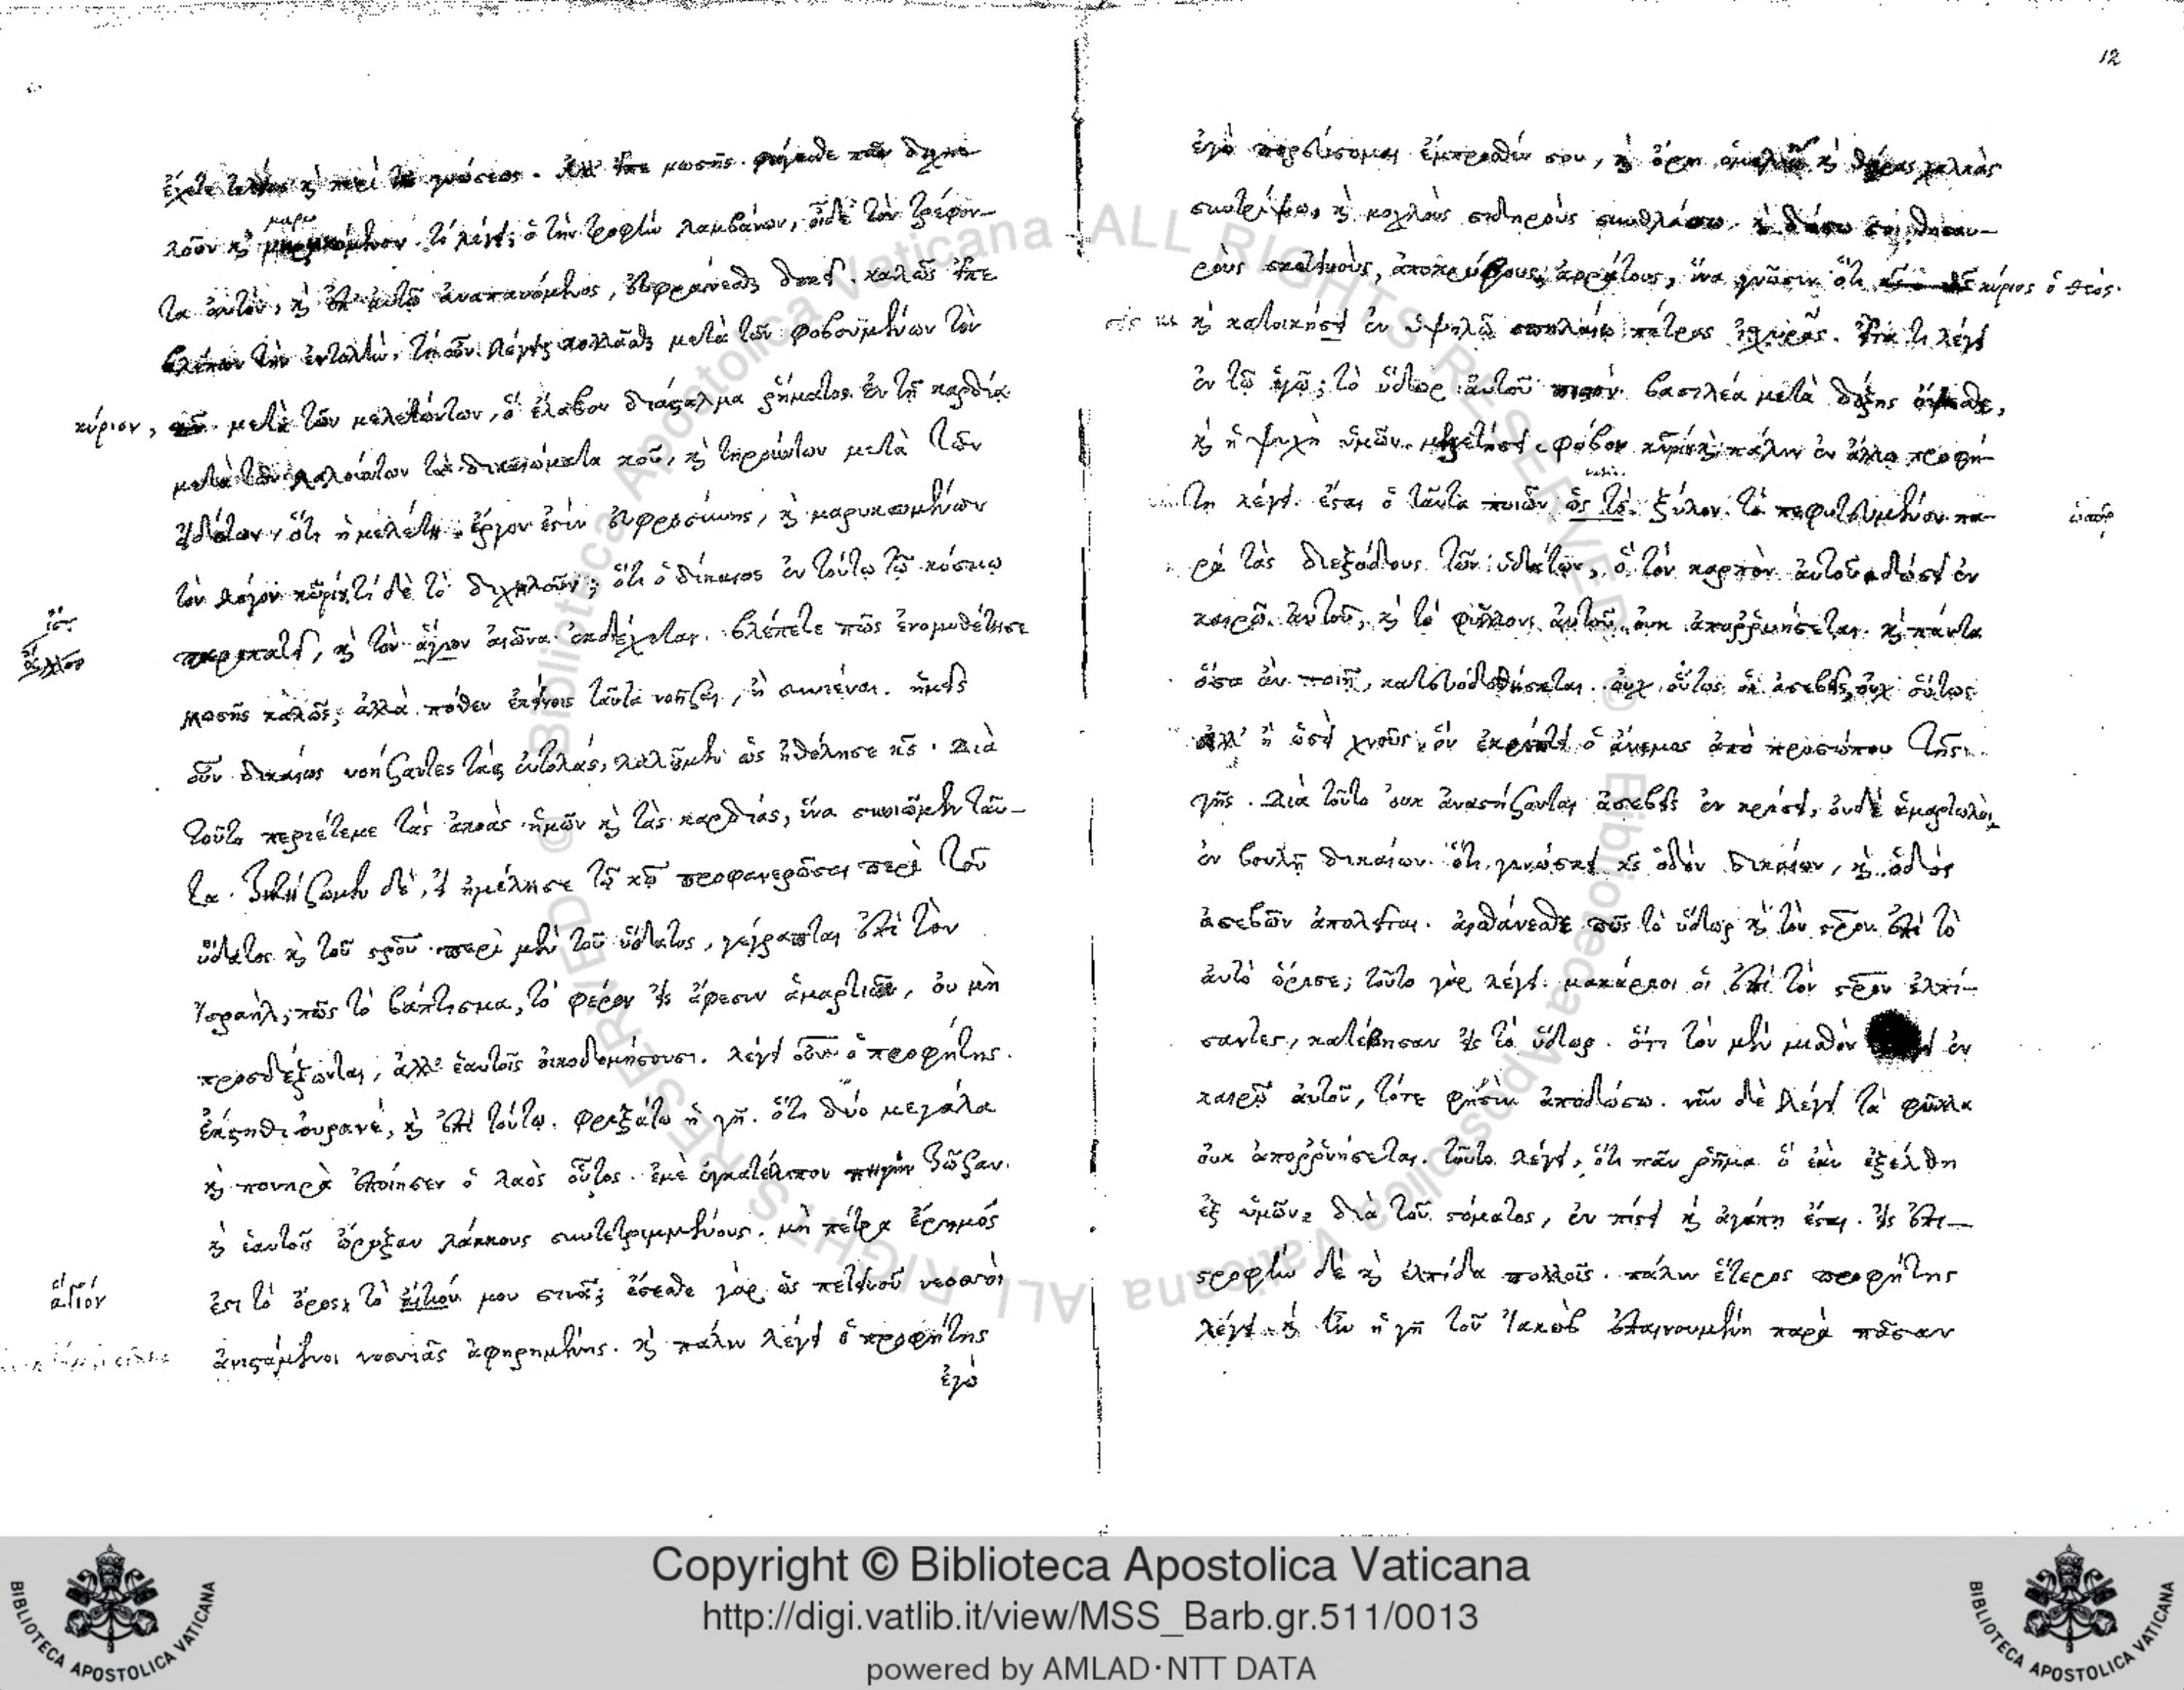 12
ἔχετε τελείως καὶ περὶ τῆς γνώσεως. μωσῆς. φάγεσθε πᾶν διχη-
λοῦν καὶ μαρυκώμενον. τί λέγει; ὁ τὴν τροφὴν λαμβάνων, οἶδε τὸν τρέφον-
τα αὐτὸν, καὶ ἐπ' αὐτῷ ἀναπαυόμενος, εὐφραίνεσθαι δοκεῖ. καλῶς εἶπε
βλέπων τὴν ἐντολὴν. τί οὖν λέγει; κολλᾶσθε μετὰ τῶν φοβουμένων τὸν
κύριον, μετὰ τῶν μελετώντων, ὃ ἔλαβον διάσταλμα ῥήματος ἐν τῇ καρδίᾳ
μετὰ τῶν λαλούντων τὰ δικαιώματα κυ, καὶ τηρούντων μετὰ τῶν
εἰδότων, ὅτι ἡ μελέτη ἔργον ἐστὶν εὐφροσύνης, καὶ μαρυκωμένων
τὸν λόγον κυρίου. τί δὲ τὸ διχηλοῦν; ὅτι ὁ δίκαιος ἐν τούτῳ τῷ κόσμῳ
περιπατεῖ, καὶ τὸν ἅγιον αἰῶνα ἐκδέχεται. βλέπετε πῶς ἐνομοθέτησε
μωσῆς καλῶς; ἀλλὰ πόθεν ἐκείνοις ταῦτα νοῆσαι, ἢ συνιέναι. ἡμεῖς
οὖν δικαίως νοήσαντες τὰς ἐντολάς, λαλοῦμεν ὡς ἠθέλησε κς. Διὰ
τοῦτο περιέτεμε τὰς ἀκοὰς ἡμῶν καὶ τὰς καρδίας, ἵνα συνιῶμεν ταῦ-
τα. Ζητήσωμεν δὲ, εἰ ἠμέλησε τῷ κω προφανερῶσαι περὶ τοῦ
ὕδατος καὶ τοῦ σρου. περὶ μὲν τοῦ ὕδατος, γέγραπται ἐπὶ τὸν
Ἰσραὴλ, πῶς τὸ βάπτισμα, τὸ φέρον εἰς ἄφεσιν ἁμαρτιῶν, οὐ μὴ
προσδέξωνται, ἀλλ' ἑαυτοῖς οἰκοδομήσουσι. λέγει οὖν ὁ προφήτης.
ἔκστηθι οὐρανέ, καὶ ἐπὶ τούτῳ φριξάτω ἡ γῆ. ὅτι δύο μεγάλα
καὶ πονηρὰ ἐποίησεν ὁ λαὸς οὗτος. ἐμὲ ἐγκατέλιπον πηγὴν ζῶσαν.
καὶ ἑαυτοῖς ὤρυξαν λάκκους συντετριμμένους. μὴ πέτρα ἔρημός
ἐστι τὸ ὄρος τὸ μου σινᾶ; ἔσεσθε γὰρ ὡς πετεινοῦ νεοσσοὶ
ἅγιον
ἀνιστάμενοι νοσσιᾶς ἀφηρημένης. καὶ πάλιν λέγει ὁ προφήτης
ἐγὼ
ἐγὼ πορεύσομαι ἔμπροσθέν σου, καὶ ὄρη ὁμαλιῶ καὶ θύρας χαλκὰς
συντρίψω, καὶ μοχλοὺς σιδηροὺς συνθλάσω, καὶ δώσω σοι θησαυ-
ροὺς σκοτεινοὺς, ἀποκρύφους, ἀοράτους, ἵνα γνῶσιν ὅτι κύριος ὁ θεός.
καὶ κατοικήσει ἐν ὑψηλῷ σπηλαίῳ πέτρας ἰσχυρᾶς. εἶτα τί λέγει
ἐν τῷ υἱῷ; τὸ ὕδωρ αὐτοῦ πιστόν. βασιλέα μετὰ δόξης ὄψεσθε,
καὶ ἡ ψυχὴ ὑμῶν μελετήσει φόβον κυρίου. καὶ πάλιν ἐν ἄλλῳ προφή-
τῃ λέγει. ἔσται ὁ ταῦτα ποιῶν ὡς τὸ ξύλον τὸ πεφυτευμένον πα-
ρὰ τὰς διεξόδους τῶν ὑδάτων, ὃ τὸν καρπὸν αὐτοῦ δώσει ἐν
καιρῷ αὐτοῦ, καὶ τὸ φύλλον αὐτοῦ οὐκ ἀπορρυήσεται. καὶ πάντα
ὅσα ἂν ποιῇ, κατευοδωθήσεται. οὐχ οὕτως οἱ ἀσεβεῖς, οὐχ οὕτως
ἀλλ' ἢ ὡσεὶ χνοῦς ὃν ἐκρίπτει ὁ ἄνεμος ἀπὸ προσώπου τῆς
γῆς. Διὰ τοῦτο οὐκ ἀναστήσονται ἀσεβεῖς ἐν κρίσει, οὐδὲ ἁμαρτωλοὶ
ἐν βουλῇ δικαίων. ὅτι γινώσκει κς ὁδὸν δικαίων, καὶ ὁδὸς
ἀσεβῶν ἀπολεῖται. αἰσθάνεσθε πῶς τὸ ὕδωρ καὶ τὸν σρον ἐπὶ τὸ
αὐτὸ ὥρισε; τοῦτο γὰρ λέγει. μακάριοι οἳ ἐπὶ τὸν σρον ἐλπί-
σαντες, κατέβησαν εἰς τὸ ὕδωρ. ὅτι τὸν μὲν μισθὸν ἐν
καιρῷ αὐτοῦ, τότε φησὶν ἀποδώσω. νῦν δὲ λέγει τὰ φύλλα
οὐκ ἀπορρυήσεται. τοῦτο λέγει, ὅτι πᾶν ῥῆμα ὃ ἐὰν ἐξέλθῃ
ἐξ ὑμῶν διὰ τοῦ στόματος, ἐν πίστει καὶ ἀγάπῃ ἔσται. εἰς ἐπι-
στροφὴν δὲ καὶ ἐλπίδα πολλοῖς. πάλιν ἕτερος προφήτης
λέγει. καὶ ἦν ἡ γῆ τοῦ Ἰακὼβ ἐπαινουμένη παρὰ πᾶσαν
© Biblioteca Apostolica Vaticana ALL RIGHTS RESERVED
Copyright © Biblioteca Apostolica Vaticana
http://digi.vatlib.it/view/MSS_Barb.gr.511/0013
powered by AMLAD·NTT DATA
BIBLIOTECA APOSTOLICA VATICANA
BIBLIOTECA APOSTOLICA VATICANA